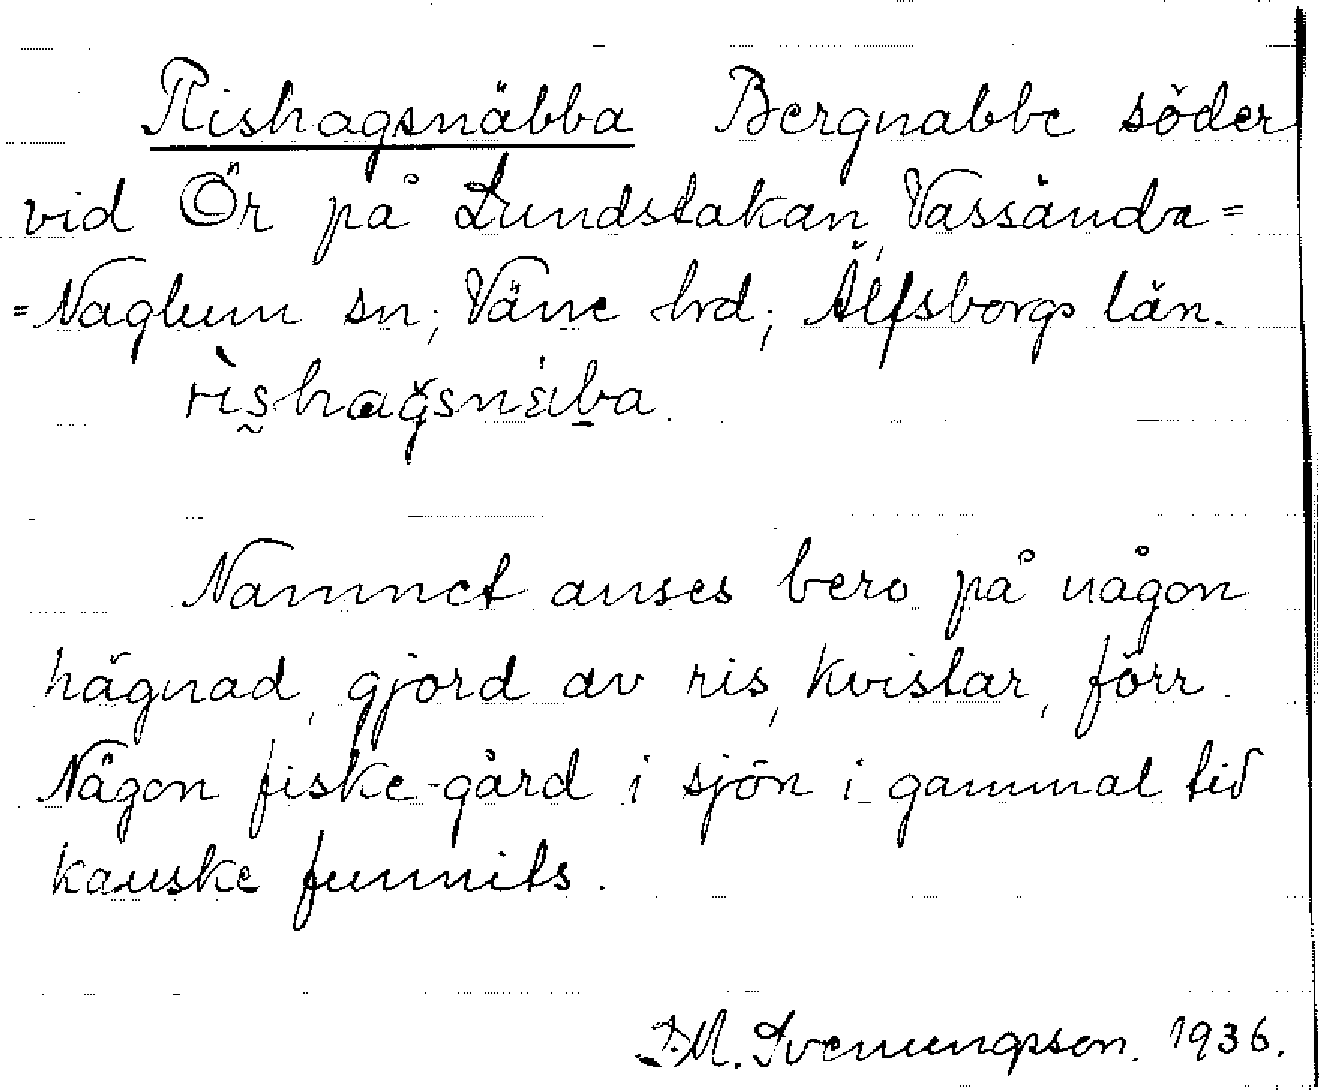 Rishagsnäbba Bergnabbe söder
vid Ör på Lundstakan, Vassända=
=Naglum sn; Väne hrd; Älfsborgs län.
rìshagsnába.
Namnet anses bero på någon
hägnad, gjord av ris, kvistar, förr.
Någon fiske-gård i sjön i gammal tid
kanske funnits.
D.M. Svenungsson. 1936.